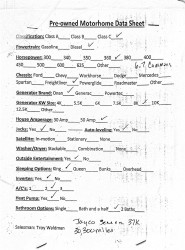 Pre-owned Motorhome Data Sheet
Classification: Class A Class B Class C ✓
Powertrain: Gasoline Diesel ✓
Horsepower: 300 340 350 360 380 400
450 500 600 625 Other 6.7 Cummins
Chassis: Ford Chevy Workhorse Dodge Mercedes
Spartan Freightliner ✓ Powerglide Roadmaster Other
Generator Brand: Onan ✓ Generac Powertec
Generator KW Size: 4K 5.5K 6K 7.5K 8K 10K
12.5K Other
House Amperage: 30 Amp 50 Amp ✓
Jacks: Yes ✓ No Auto-leveling: Yes ✓ No
Satellite: In-motion Stationary None
Washer/Dryer: Stackable Combination None
Outside Entertainment: Yes ✓ No
Sleeping Options: King Queen Bunks Overhead
Inverter: Yes ✓ No
A/C's: 1 2 3
Heat Pump: Yes ✓ No
Bathroom Options: Single Bath and a half ✓ 2 Baths
Jayco Seneca 37K
Salesman: Troy Waldman 30,300 miles